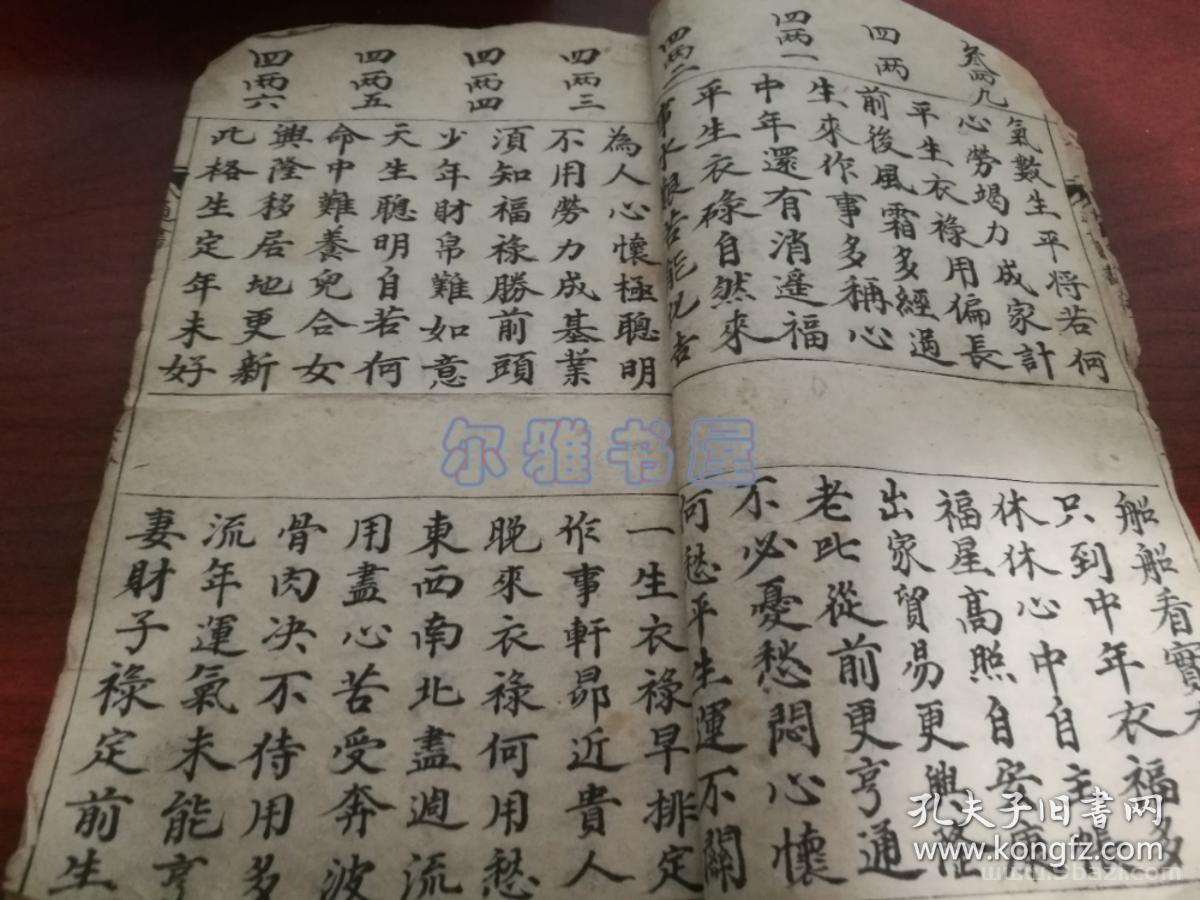 叁兩九
四兩
四兩一
四兩二
氣數生平將若何
心勞竭力成家計
平生衣祿用偏長
前後風霜多經過
生來作事多稱心
中年還有消遙福
平生衣碌自然來
船船看寶
只到中年衣福多
休休心中自主張
福星高照自安康
出家貿易更興隆
老比從前更亨通
不必憂愁悶心懷
何愁平生運不關
四兩三
四兩四
四兩五
四兩六
為人心懷極聰明
不用勞力成基業
須知福祿勝前頭
少年財帛難如意
天生聰明自若何
命中難養兒合女
興隆移居地更新
此格生定年未好
一生衣祿早排定
作事軒昴近貴人
晚來衣祿何用愁
東西南北盡週流
用盡心苦受奔波
骨肉决不待用多
流年運氣未能亨
妻財子祿定前生
尔雅书屋
孔夫子旧书网
www.kongfz.com